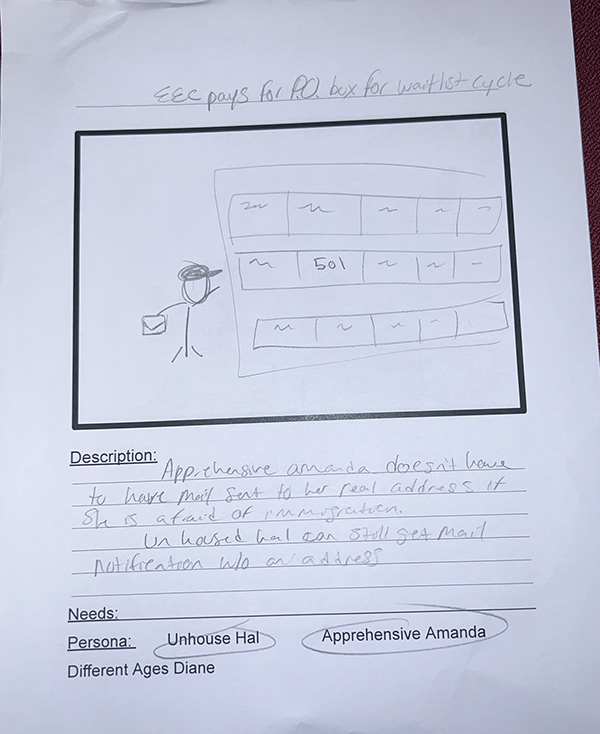 EEC pays for P.O. box for waitlist cycle
501
Description:
Apprehensive amanda doesn't have
to have mail sent to her real address if
She is afraid of immigration.
Un housed hal can still get mail
notification w/o an address
Needs:
Persona: Unhouse Hal Apprehensive Amanda
Different Ages Diane